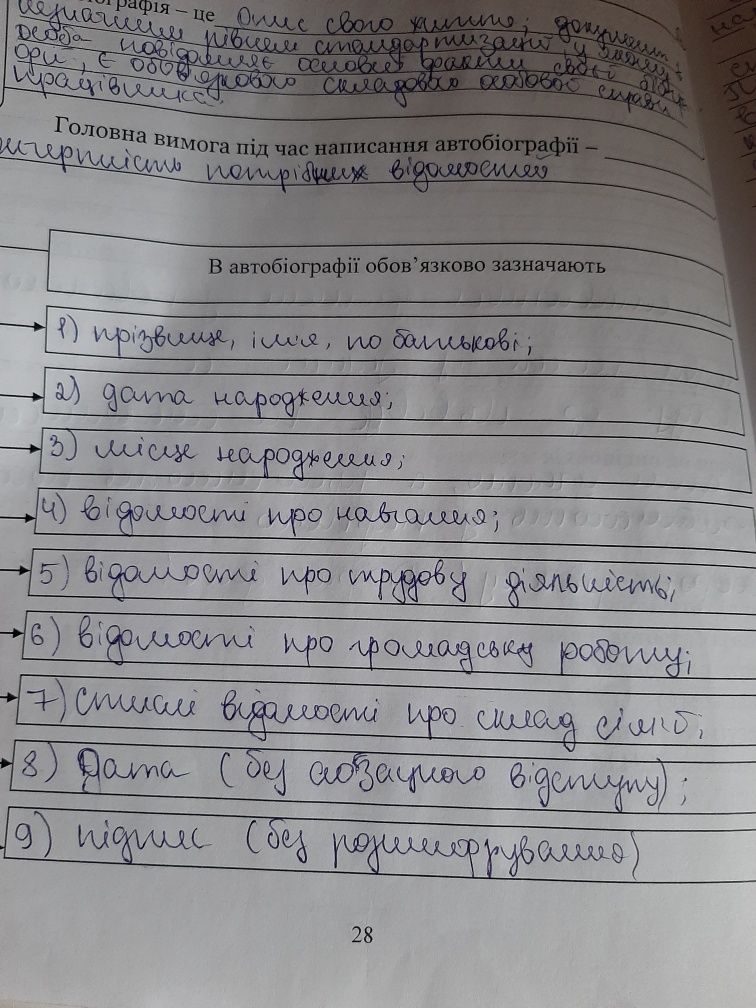 графія – це Опис свого життя; документ з
незначним рівнем стандартизації у якому
особа повідомляє основні факти своєї біогр
фії, є обов'язковою складовою особової справи
працівника.
Головна вимога під час написання автобіографії –
потрібних відомостей
В автобіографії обов'язково зазначають
1) прізвище, ім'я, по батькові;
2) дата народження;
3) місце народження;
4) відомості про навчання;
5) відомості про трудову діяльність;
6) відомості про громадську роботу;
7) стислі відомості про склад сім'ї;
8) Дата (без абзацного відступу);
9) підпис (без розшифрування)
28